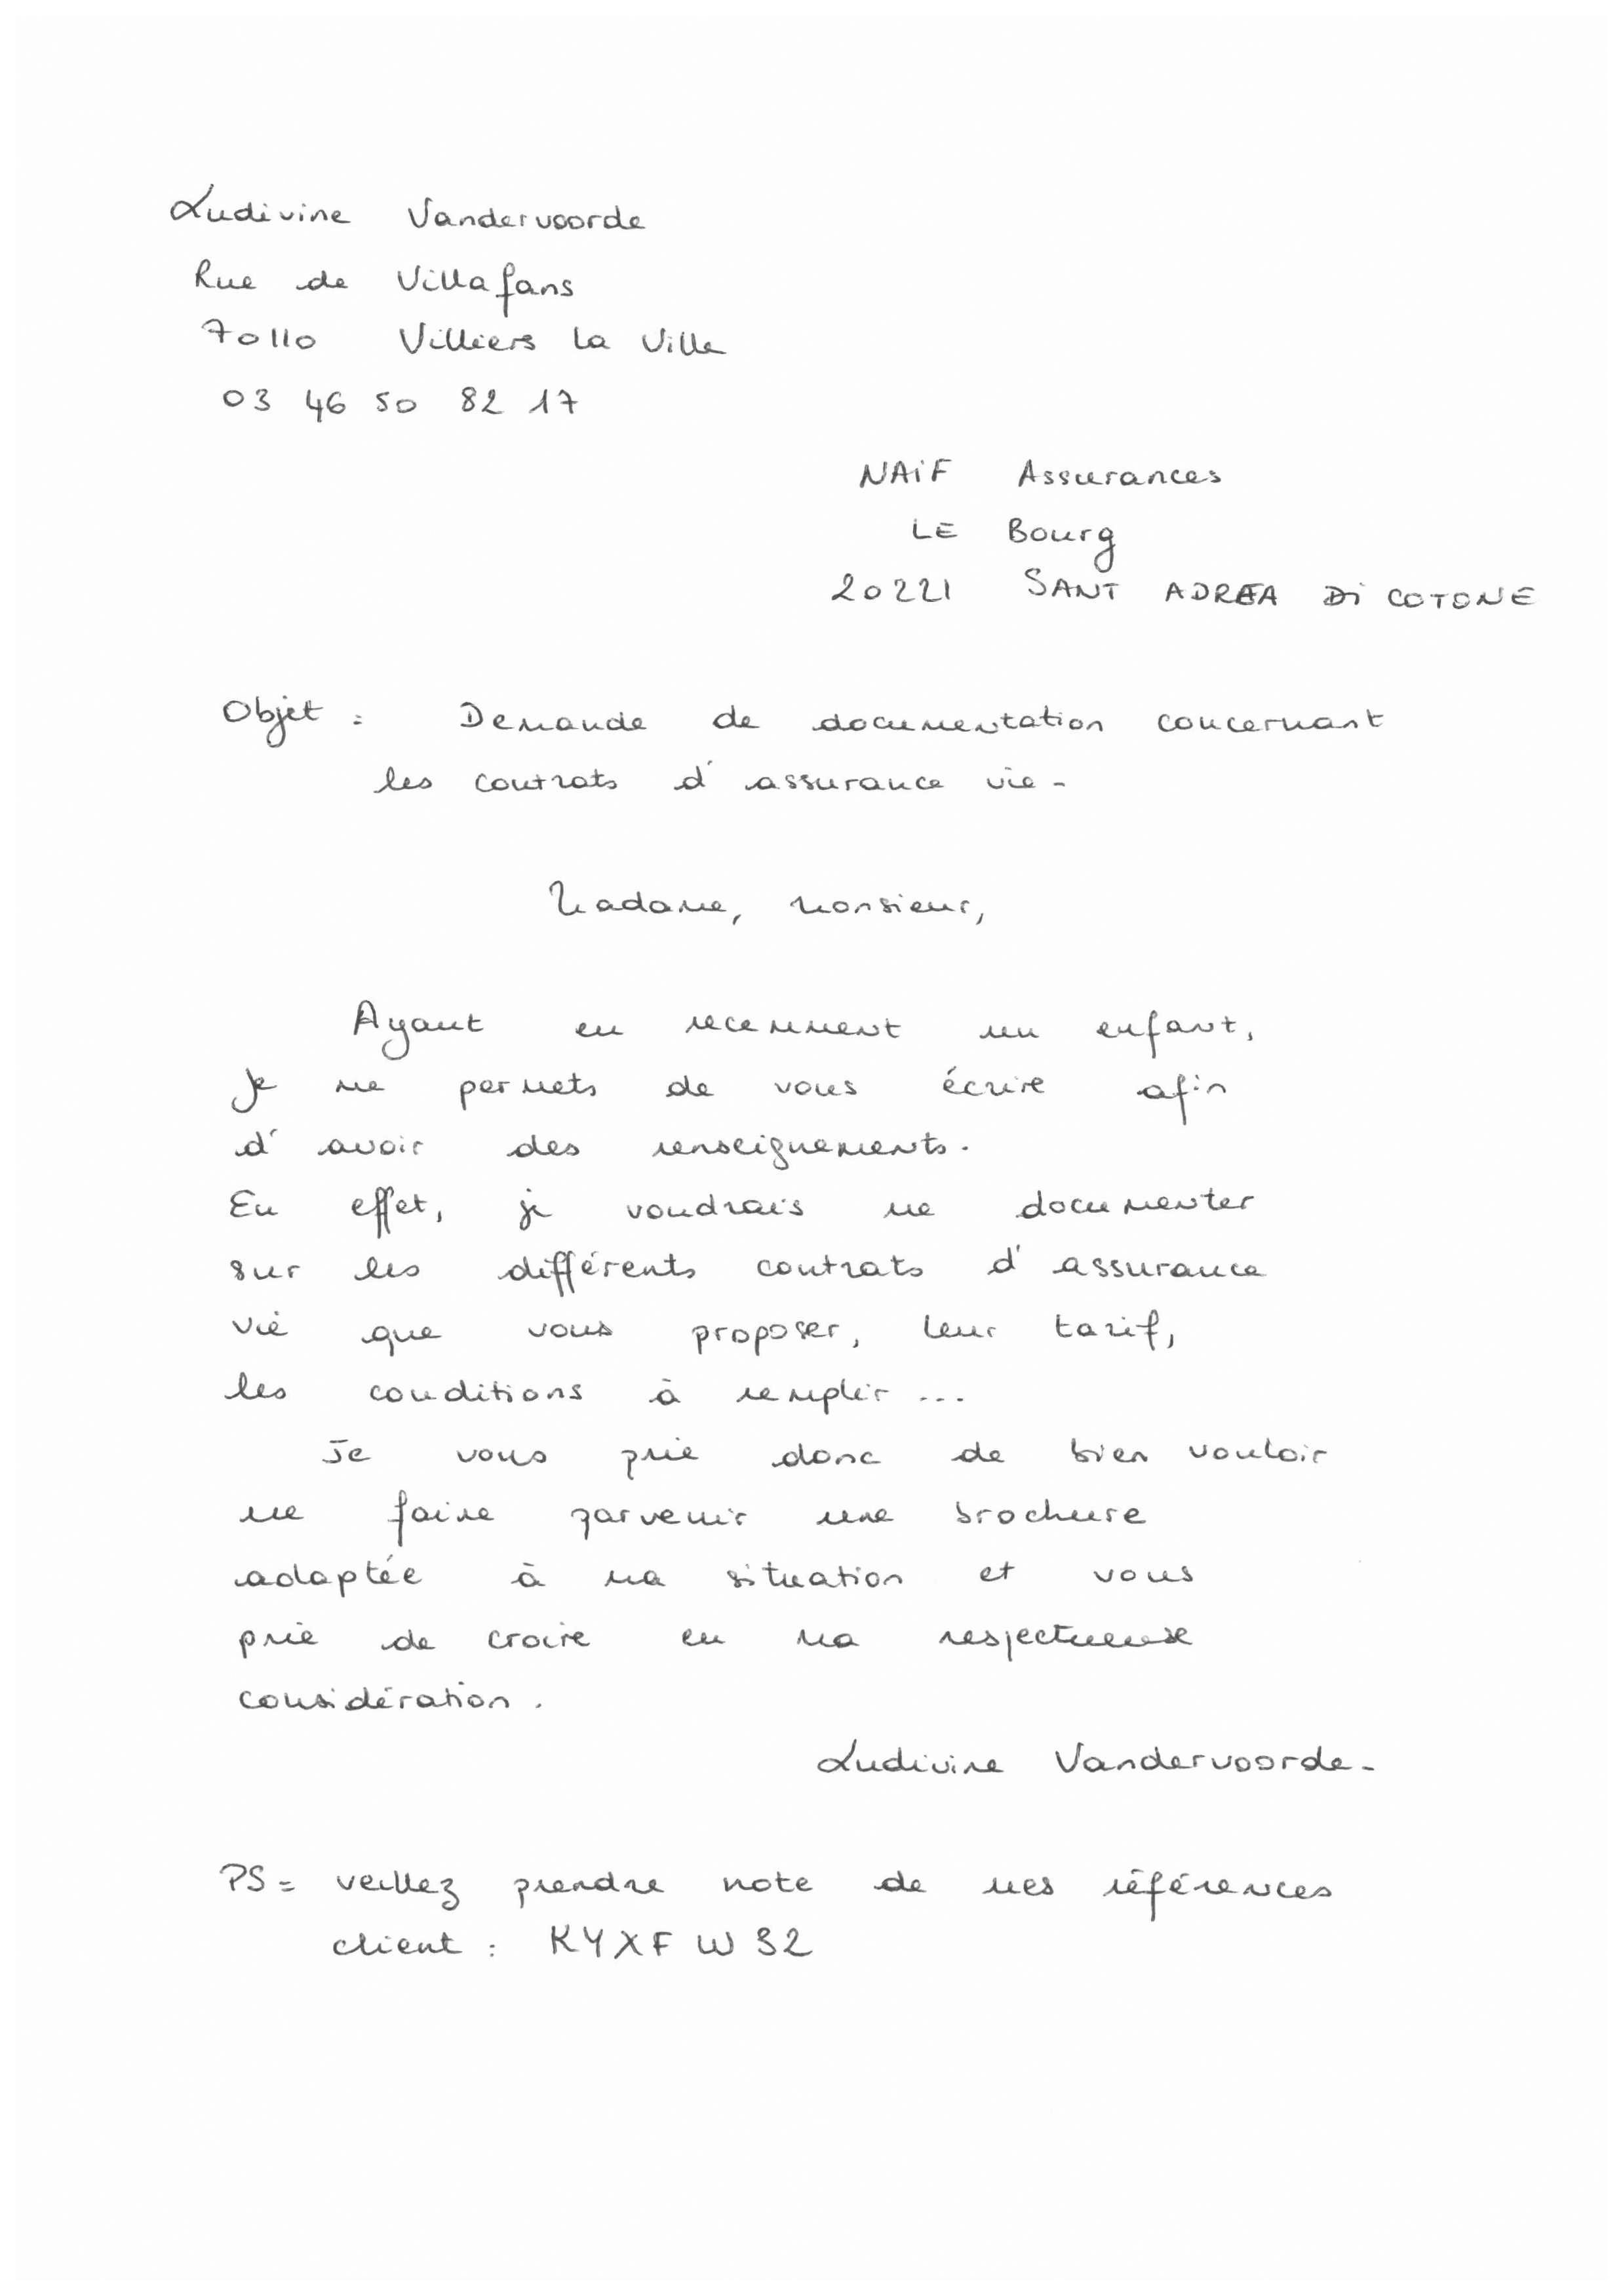 Ludivine Vandervoorde
Rue de Villafans
70110 Villiers la Ville
03 46 50 82 17
NAiF Assurances
LE Bourg
20221 SANT ADREA Di COTONE
Objet : Demande de documentation concernant
les contrats d'assurance vie -
Madame, Monsieur,
Ayant eu recemment un enfant,
Je me permets de vous écrire afin
d'avoir des renseignements.
En effet, je voudrais me documenter
sur les différents contrats d'assurance
vie que vous proposer, leur tarif,
les conditions à remplir ...
Je vous prie donc de bien vouloir
me faire parvenir une brochure
adaptée à ma situation et vous
prie de croire en ma respectueuse
considération.
Ludivine Vandervoorde-
PS = veillez prendre note de mes références
client : KYXFW32